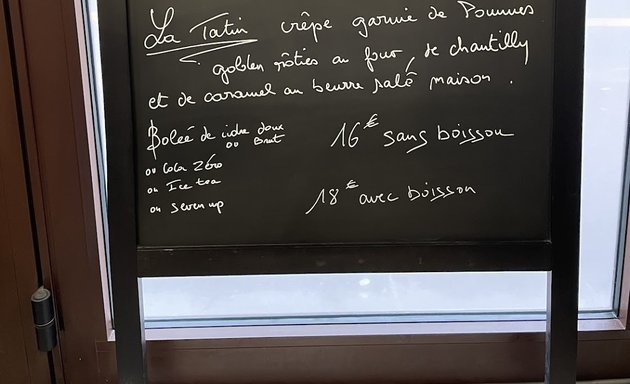 La Tatin crêpe garnie de Pommes
golden rôties au four, de chantilly
et de caramel au beurre salé maison.
Bolée de cidre doux
ou Brut
ou Cola Zéro
ou Ice tea
ou Seven up
16€ sans boisson
18€ avec boisson